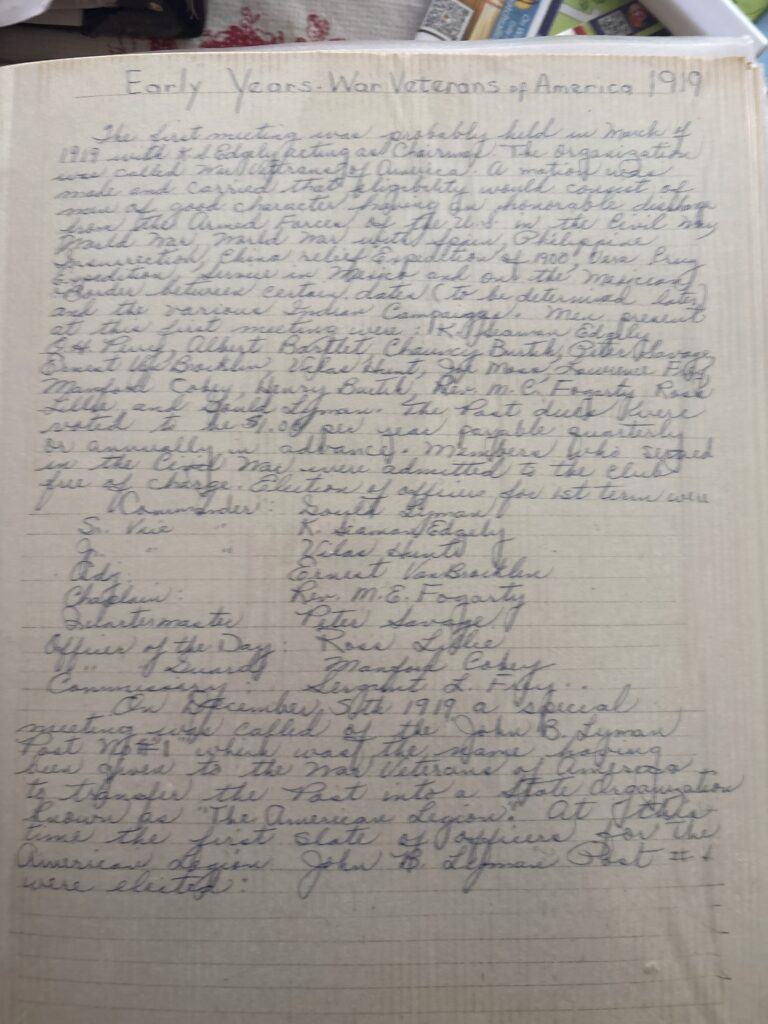 Early Years - War Veterans of America 1919
The first meeting was probably held in March of
1919 with K.S. Edgely acting as Chairman. The Organization
was called War Veterans of America. A motion was
made and carried that eligibility would consist of
men of good character having an honorable discharge
from the Armed Forces of the U.S. in the Civil War,
World War, World War with Spain, Philippine
Insurrection, China relief Expedition of 1900, Vera Cruz
Expedition, Service in Mexico and on the Mexican
Border between certain dates (to be determined later)
and the various Indian Campaigns. Men present
at this first meeting were: K. Seaman Edgely
Perry, Albert Bartlet, Chauncy Burtch, Peter Savage,
Ernest Van Brocklin, Vilas Hunt, Joe Moss, Lawrence Fray,
Manford Cobey, Henry Burtch, Rev. M.C. Fogarty, Ross
Lillie, and Gould Lyman. The Past dues were
voted to be $1.00 per year payable quarterly
or annually in advance. Members who served
in the Civil War were admitted to the club
free of charge. Election of officers for 1st term were
Commander: Gould Lyman
Sr. Vice " K. Seaman Edgely
Jr. " " Vilas Hunt
Adj. Ernest VanBrocklen
Chaplain: Rev. M.E. Fogarty
Quartermaster Peter Savage
Officer of the Day: Ross Lillie
" " Guard Manford Cobey
Commissary: Sergent L. Fray
On December 5th 1919 a special
meeting was called of the John B. Lyman
Post No #1 which was the name having
been given to the War Veterans of America
to transfer the Post into a State Organization
known as "The American Legion." At this
time the first slate of officers for the
American Legion John B. Lyman Post #1
were elected: